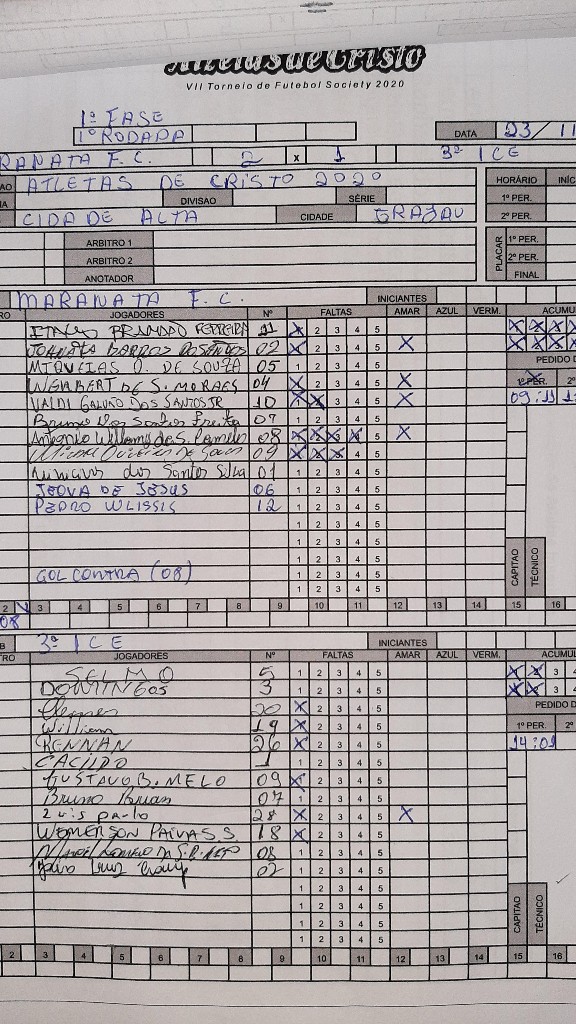 Atletas de Cristo
VII Torneio de Futebol Society 2020
1ª FASE
1º RODADA
DATA 23/11
RANATA F.C. 2 x 1 3ª ICE
ATLETAS DE CRISTO 2020 HORÁRIO INÍC
DIVISAO SÉRIE 1º PER.
CIDADE ALTA CIDADE GRAJAU 2º PER.
ARBITRO 1 PLACAR 1º PER.
ARBITRO 2 2º PER.
ANOTADOR FINAL
MARANATA F.C. INICIANTES
RO JOGADORES Nº FALTAS AMAR AZUL VERM. ACUMU
BRANDÃO FERREIRA 11 X 2 3 4 5 X X X X
BARROS 02 X 2 3 4 5 X X X X X
MIQUEIAS O. DE SOUZA 05 1 2 3 4 5 PEDIDO D
WEMBERT DE S. MORAES 04 X 2 3 4 5 X 1º PER. 2º
VALDI GALVÃO DOS SANTOS JR 10 X X 3 4 5 X 09:11
Bruno Dos Santos Freita 07 1 2 3 4 5
Antonio Williams de S. 08 X X X X 5 X
09 X X X 4 5
dos Santos Silva 01 1 2 3 4 5
JEOVA DE JESUS 06 1 2 3 4 5
PEDRO WLISSIS 12 1 2 3 4 5
1 2 3 4 5
1 2 3 4 5
1 2 3 4 5 CAPITAO TÉCNICO
GOL CONTRA (08) 1 2 3 4 5
1 2 3 4 5
2 3 4 5 6 7 8 9 10 11 12 13 14 15 16
08
B 3ª ICE INICIANTES
TRO JOGADORES Nº FALTAS AMAR AZUL VERM. ACUMU
SELMO 5 1 2 3 4 5 X X 3 4
DOMINGOS 3 1 2 3 4 5 X X 3 4
20 X 2 3 4 5 PEDIDO D
William 19 X 2 3 4 5 1º PER. 2º
RENNAN 26 X 2 3 4 5 14:01
1 1 2 3 4 5
GUSTAVO B. MELO 09 X 2 3 4 5
Bruno 07 1 2 3 4 5
Luis paulo 28 X 2 3 4 5 X
WEMERSON PAIVA S.S 18 X 2 3 4 5
08 1 2 3 4 5
02 1 2 3 4 5
1 2 3 4 5
1 2 3 4 5 CAPITAO TÉCNICO
1 2 3 4 5
1 2 3 4 5
2 3 4 5 6 7 8 9 10 11 12 13 14 15 16